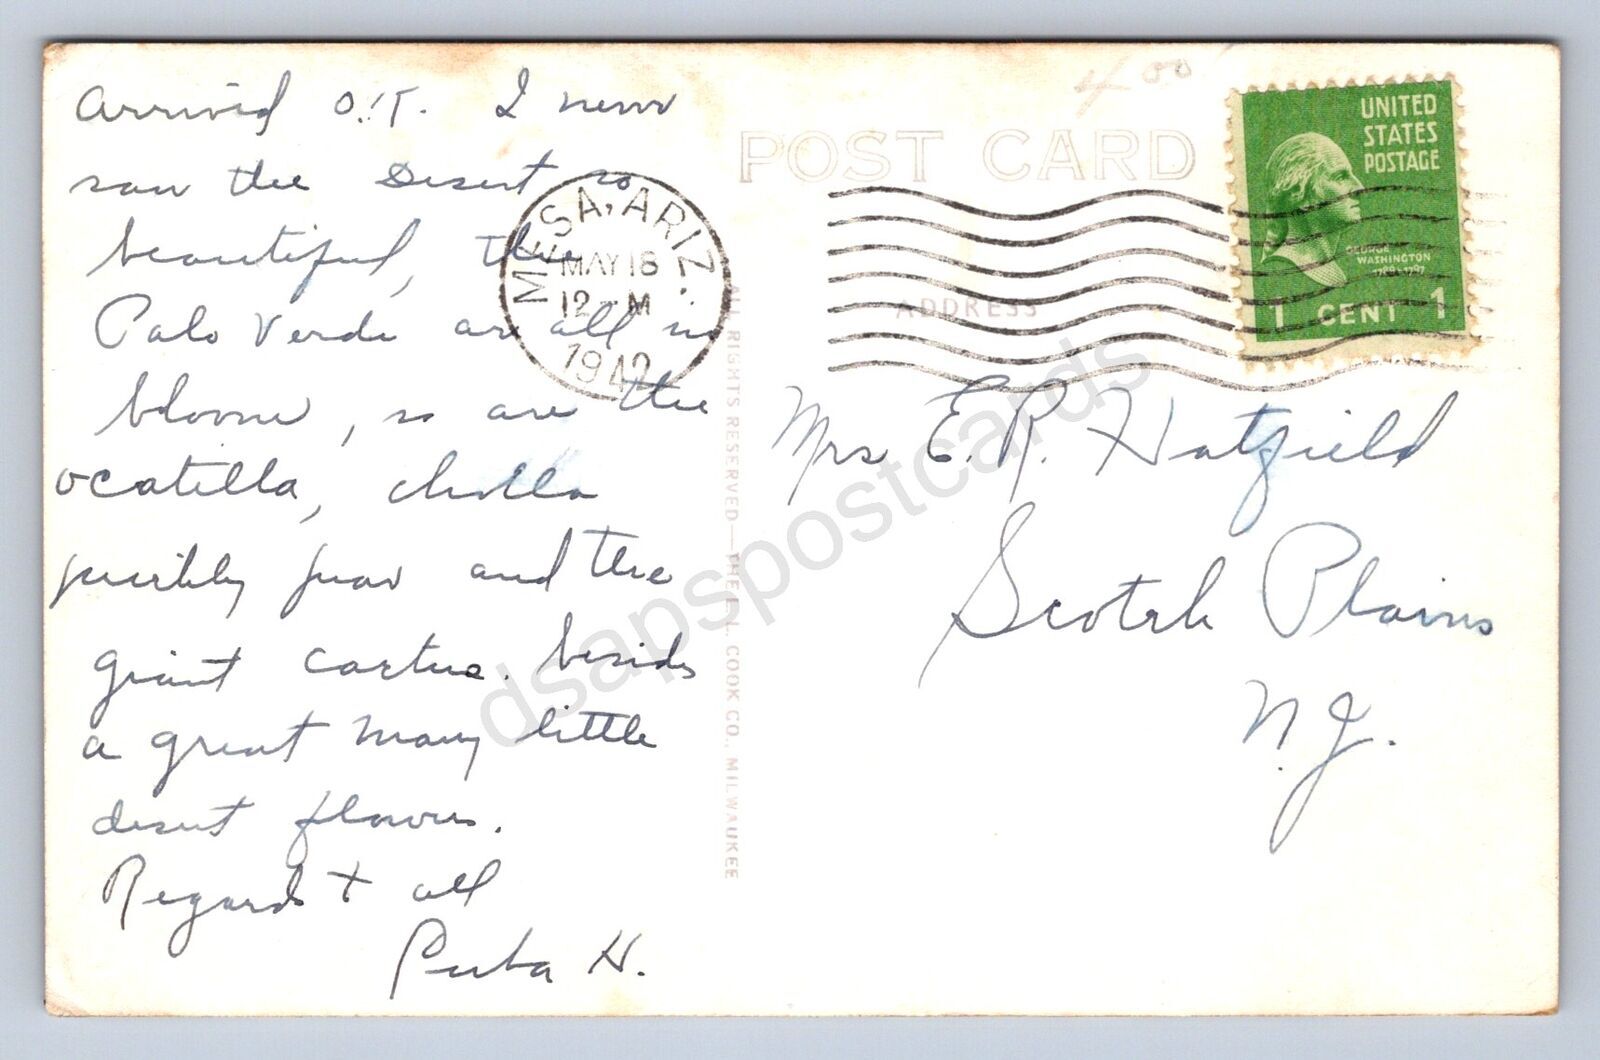 Arrived O.K. I never
saw the Desert so
beautiful, the
Palo Verde are all in
bloom, so are the
ocatilla, cholla
prickly pear and the
giant cactus. besides
a great many little
desert flowers.
Regards to all
H.
MESA, ARIZ.
MAY 18
12 - M
1942
4 00
POST CARD
ADDRESS
UNITED
STATES
POSTAGE
GEORGE
WASHINGTON
1789-1797
1 CENT 1
Mrs E. R. Hatfield
Scotch Plains
N.J.
ALL RIGHTS RESERVED—THE E. L. COOK CO., MILWAUKEE
dsapspostcards